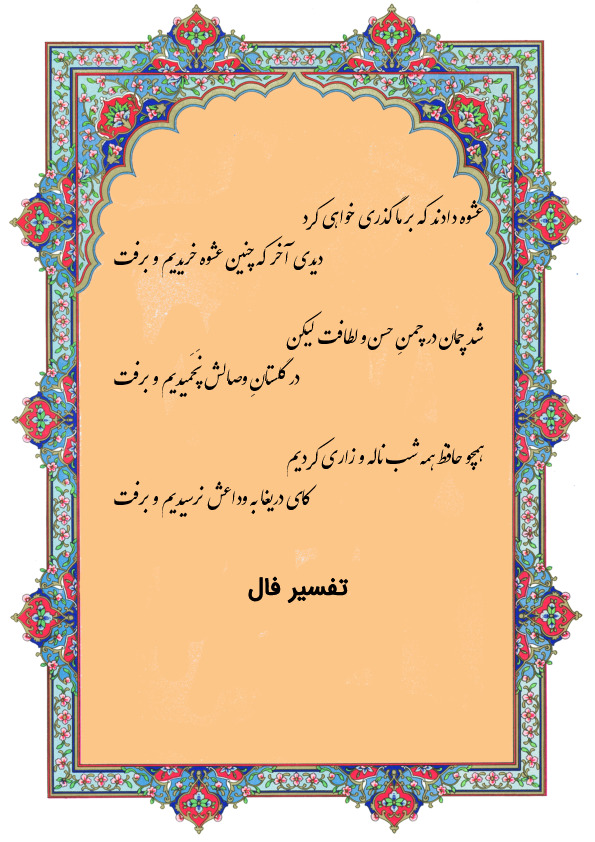 عشوه دادند که بر ما گذری خواهی کرد
دیدی آخر که چنین عشوه خریدیم و برفت
شد چمان در چمنِ حسن و لطافت لیکن
در گلستانِ وصالش نَچَمیدیم و برفت
همچو حافظ همه شب ناله و زاری کردیم
کای دریغا به وداعش نرسیدیم و برفت
تفسیر فال